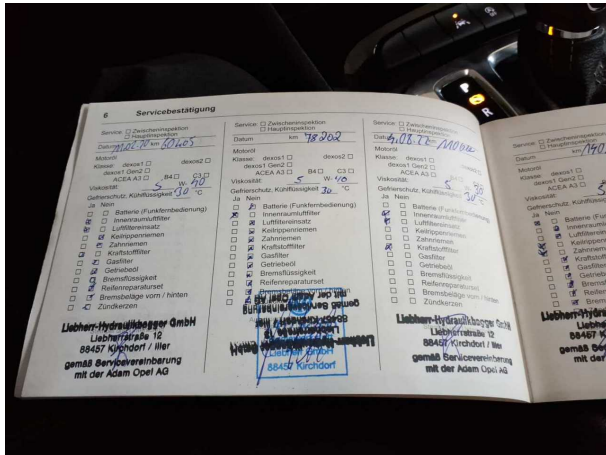 6 Servicebestätigung
Service: □ Zwischeninspektion
□ Hauptinspektion
Datum km 60205
Motoröl
Klasse: dexos1 □ dexos2 □
dexos1 Gen2 □
ACEA A3 □ B4 □ C3 □
Viskosität: 5 W- 40
Gefrierschutz, Kühlflüssigkeit -30 °C
Ja Nein
Batterie (Funkfernbedienung)
Innenraumluftfilter
Luftfiltereinsatz
Keilrippenriemen
Zahnriemen
Kraftstofffilter
Gasfilter
Getriebeöl
Bremsflüssigkeit
Reifenreparaturset
Bremsbeläge vorn / hinten
Zündkerzen
Liebherr-Hydraulikbagger GmbH
Liebherrstraße 12
88457 Kirchdorf / Iller
gemäß Servicevereinbarung
mit der Adam Opel AG
Service: □ Zwischeninspektion
□ Hauptinspektion
Datum km 78202
Motoröl
Klasse: dexos1 □ dexos2 □
dexos1 Gen2 □
ACEA A3 □ B4 □ C3 □
Viskosität: 5 W- 40
Gefrierschutz, Kühlflüssigkeit 30 °C
Ja Nein
Batterie (Funkfernbedienung)
Innenraumluftfilter
Luftfiltereinsatz
Keilrippenriemen
Zahnriemen
Kraftstofffilter
Gasfilter
Getriebeöl
Bremsflüssigkeit
Reifenreparaturset
Bremsbeläge vorn / hinten
mit der Adam Opel AG
gemäß Servicevereinbarung
88457 Kirchdorf / Iller
Liebherrstraße 12
Liebherr-Hydraulikbagger GmbH
Liebherr GmbH
88457 Kirchdorf
Service: □ Zwischeninspektion
□ Hauptinspektion
Datum km
Motoröl
Klasse: dexos1 □ dexos2 □
dexos1 Gen2 □
ACEA A3 □ B4 □ C3 □
Viskosität: 5
Gefrierschutz, Kühlflüssigkeit 30 °C
Ja Nein
Batterie (Funkfernbedienung)
Innenraumluftfilter
Luftfiltereinsatz
Keilrippenriemen
Zahnriemen
Kraftstofffilter
Gasfilter
Getriebeöl
Bremsflüssigkeit
Reifenreparaturset
Bremsbeläge vorn / hinten
Zündkerzen
Liebherr-Hydraulikbagger GmbH
Liebherrstraße 12
88457 Kirchdorf / Iller
gemäß Servicevereinbarung
mit der Adam Opel AG
Service: □
Datum km 140.
Motoröl
Klasse: dexos1 □
dexos1 Gen2 □
ACEA A3 □
Viskosität: 5
Ja Nein
P
R